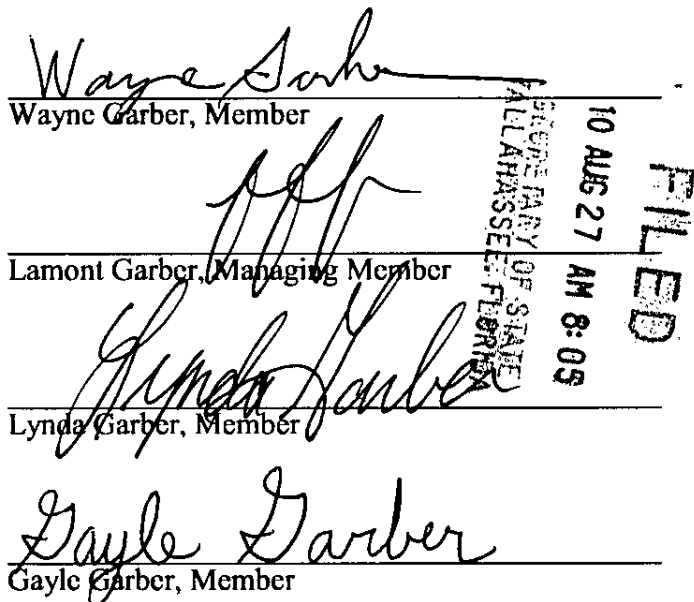 Wayne Garber
Wayne Garber, Member
Lamont Garber, Managing Member
Lynda Garber
Lynda Garber, Member
Gayle Garber
Gayle Garber, Member
FILED
10 AUG 27 AM 8:05
SECRETARY OF STATE
TALLAHASSEE, FLORIDA